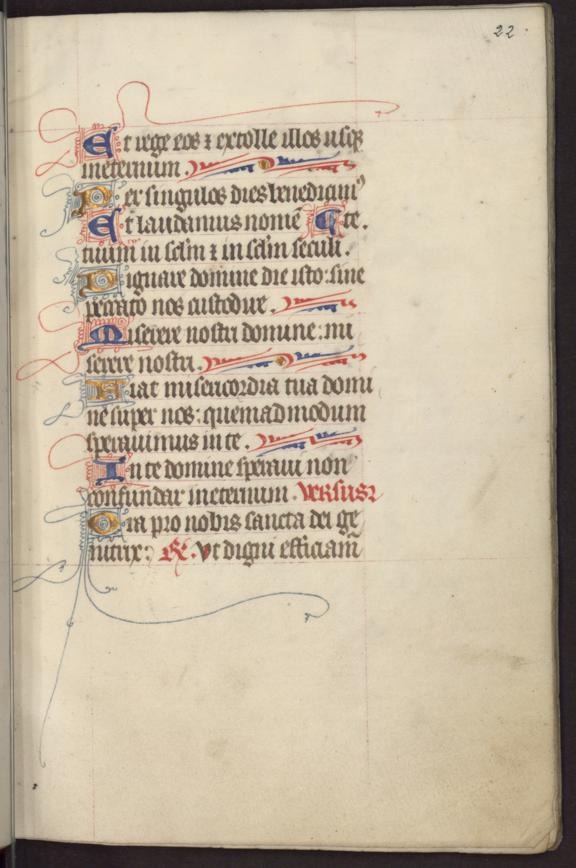 22.
Et rege eos ⁊ extolle illos usq̄
ineternum.
Per singulos dies benedicim⁹
Et laudamus nomē Et e.
tuum in sclm̄ ⁊ in sclm̄ seculi.
Dignare domine die isto: sine
peccato nos custodire.
Miserere nostri domine: mi
serere nostri.
Fiat misericordia tua domi
ne super nos: quemadmodum
sperauimus in te.
In te domine speraui non
confundar ineternum. Versus
Ora pro nobis sancta dei ge
nitrix: R̃. Vt digni efficiam̄